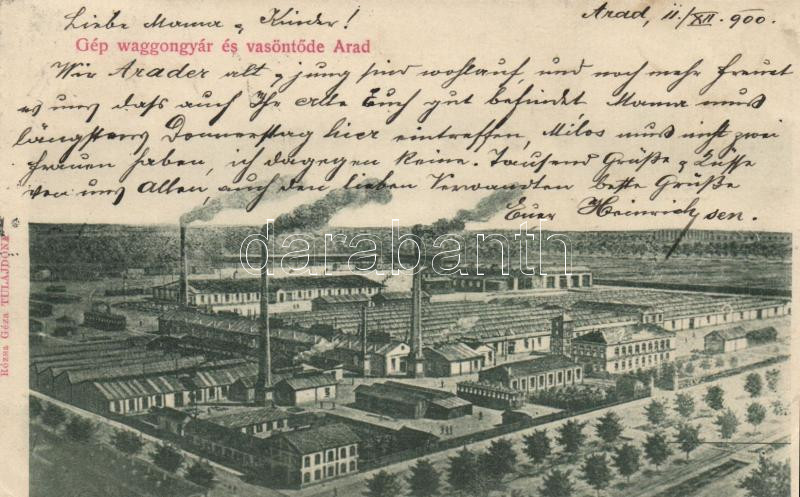 Liebe Mama & Kinder!
Arad, 11./XII. 900.
Gép waggongyár és vasöntőde Arad
Wir Arader alt & jung sind wohlauf, und noch mehr freuet
es uns dass auch Ihr alte Euch gut befindet Mama muss
längstens Donnerstag hier eintreffen, Milos muss nicht zwei
Frauen haben, ich dagegen keine. Tausend Grüße & Küsse
von uns Allen, auch den lieben Verwandten beste Grüße
Euer Heinrich sen.
darabanth
Rózsa Géza TULAJDONA